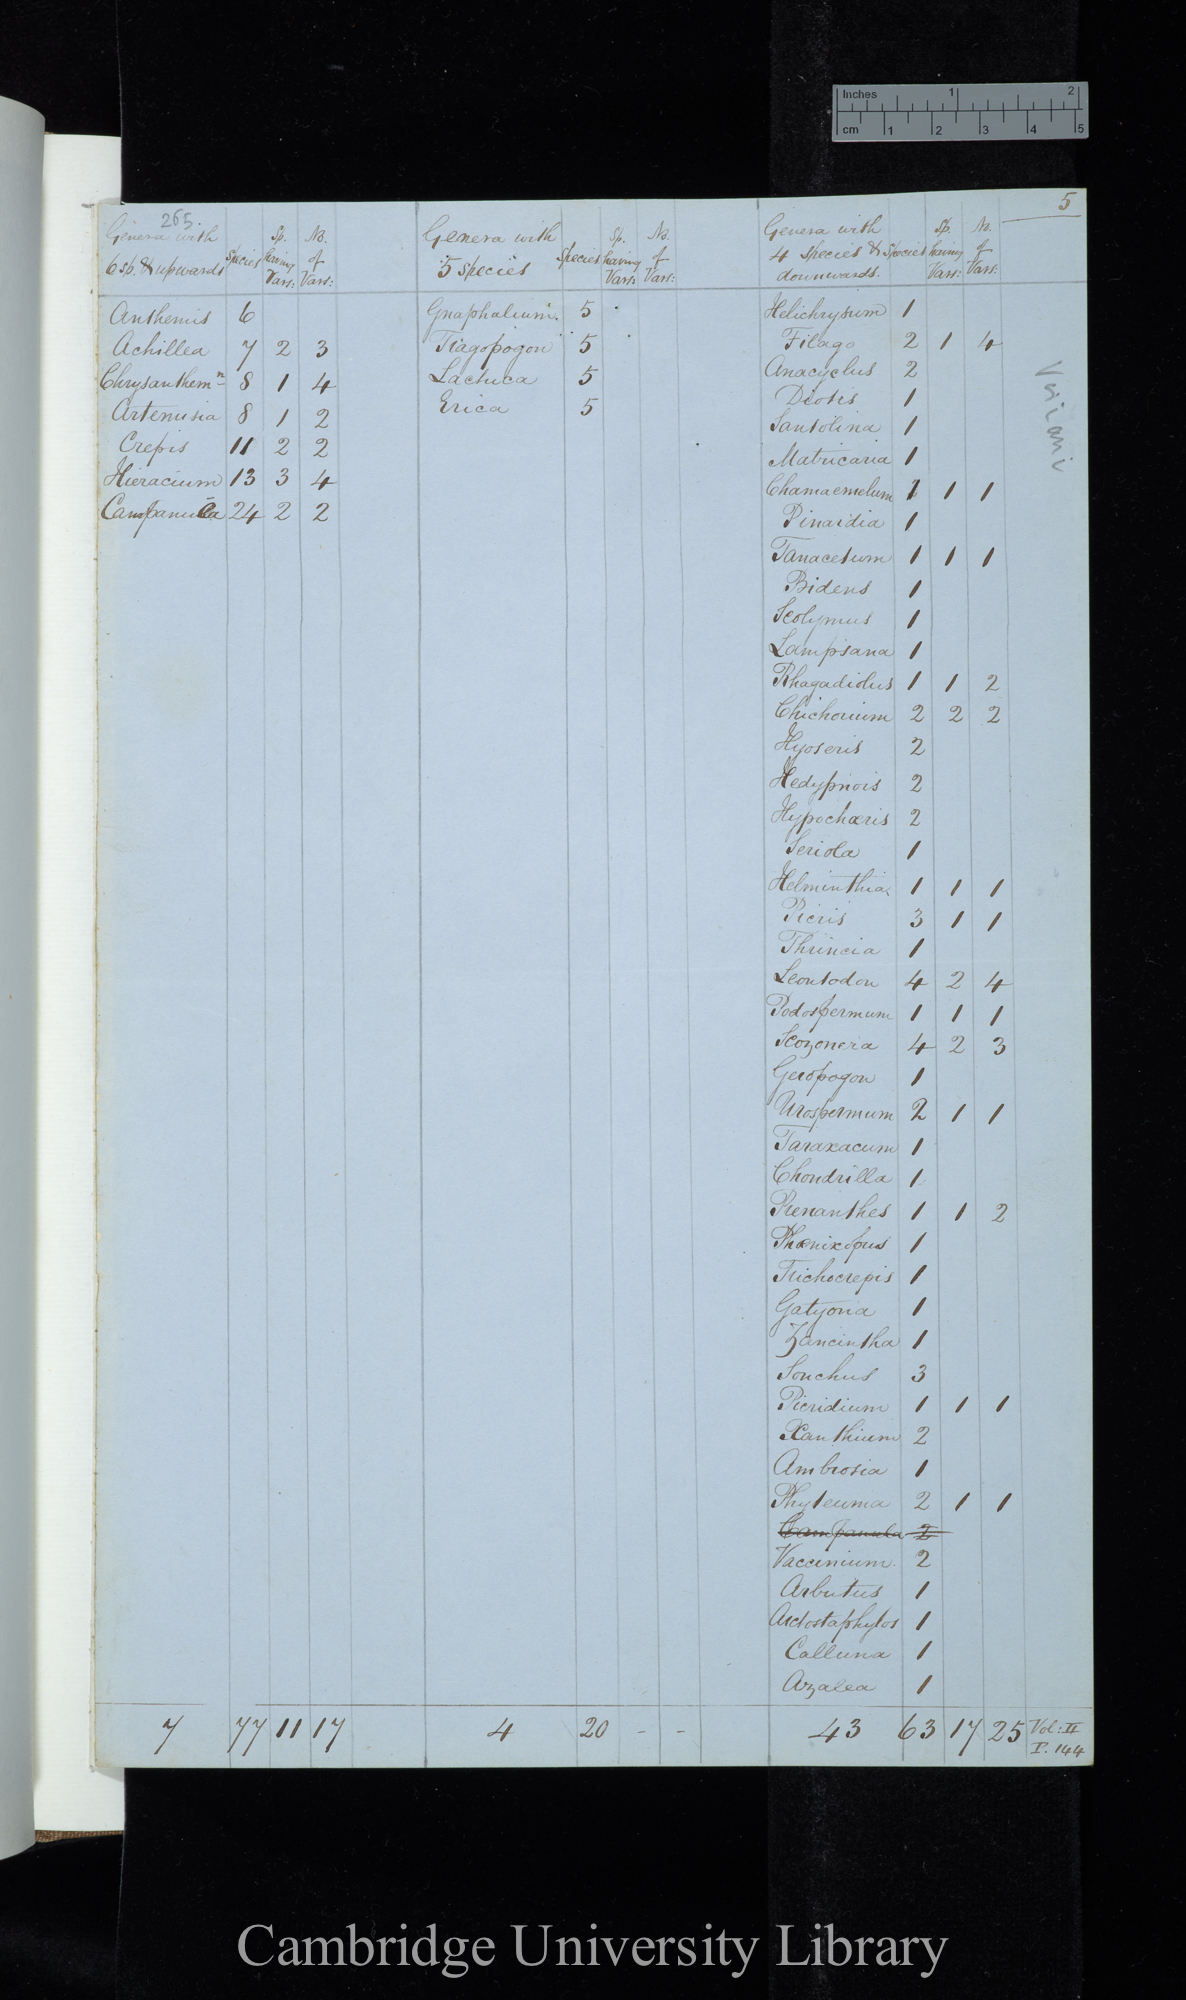 Inches 1 2
cm 1 2 3 4 5
5
265.
Genera with
6 sp. & upwards Species Sp. having Vars: No. of Vars:
Anthemis 6
Achillea 7 2 3
Chrysanthemn 8 1 4
Artemisia 8 1 2
Crepis 11 2 2
Hieracium 13 3 4
Campanula 24 2 2
7 77 11 17
Genera with
5 species Species Sp. having Vars: No. of Vars:
Gnaphalium. 5
Tragopogon 5
Lactuca 5
Erica 5
4 20 - -
Genera with
4 species & downwards. Species Sp. having Vars: No. of Vars:
Helichrysum 1
Filago 2 1 4
Anacyclus 2
Diotis 1
Santolina 1
Matricaria 1
Chamaemelum 1 1 1
Pinardia 1
Tanacetum 1 1 1
Bidens 1
Scolymus 1
Lampsana 1
Rhagadiolus 1 1 2
Chichorium 2 2 2
Hyoseris 2
Hedypnois 2
Hypochæris 2
Seriola 1
Helminthia 1 1 1
Picris 3 1 1
Thrincia 1
Leontodon 4 2 4
Podospermum 1 1 1
Scozonera 4 2 3
Geropogon 1
Urospermum 2 1 1
Taraxacum 1
Chondrilla 1
Prenanthes 1 1 2
Phænixopus 1
Trichocrepis 1
Gatyona 1
Zancintha 1
Sonchus 3
Picridium 1 1 1
Xanthium 2
Ambrosia 1
Phyteuma 2 1 1
Campanula 2
Vaccinium. 2
Arbutus 1
Arctostaphylos 1
Calluna 1
Azalea 1
43 63 17 25
Vol: II
P. 144
Visiani
Cambridge University Library